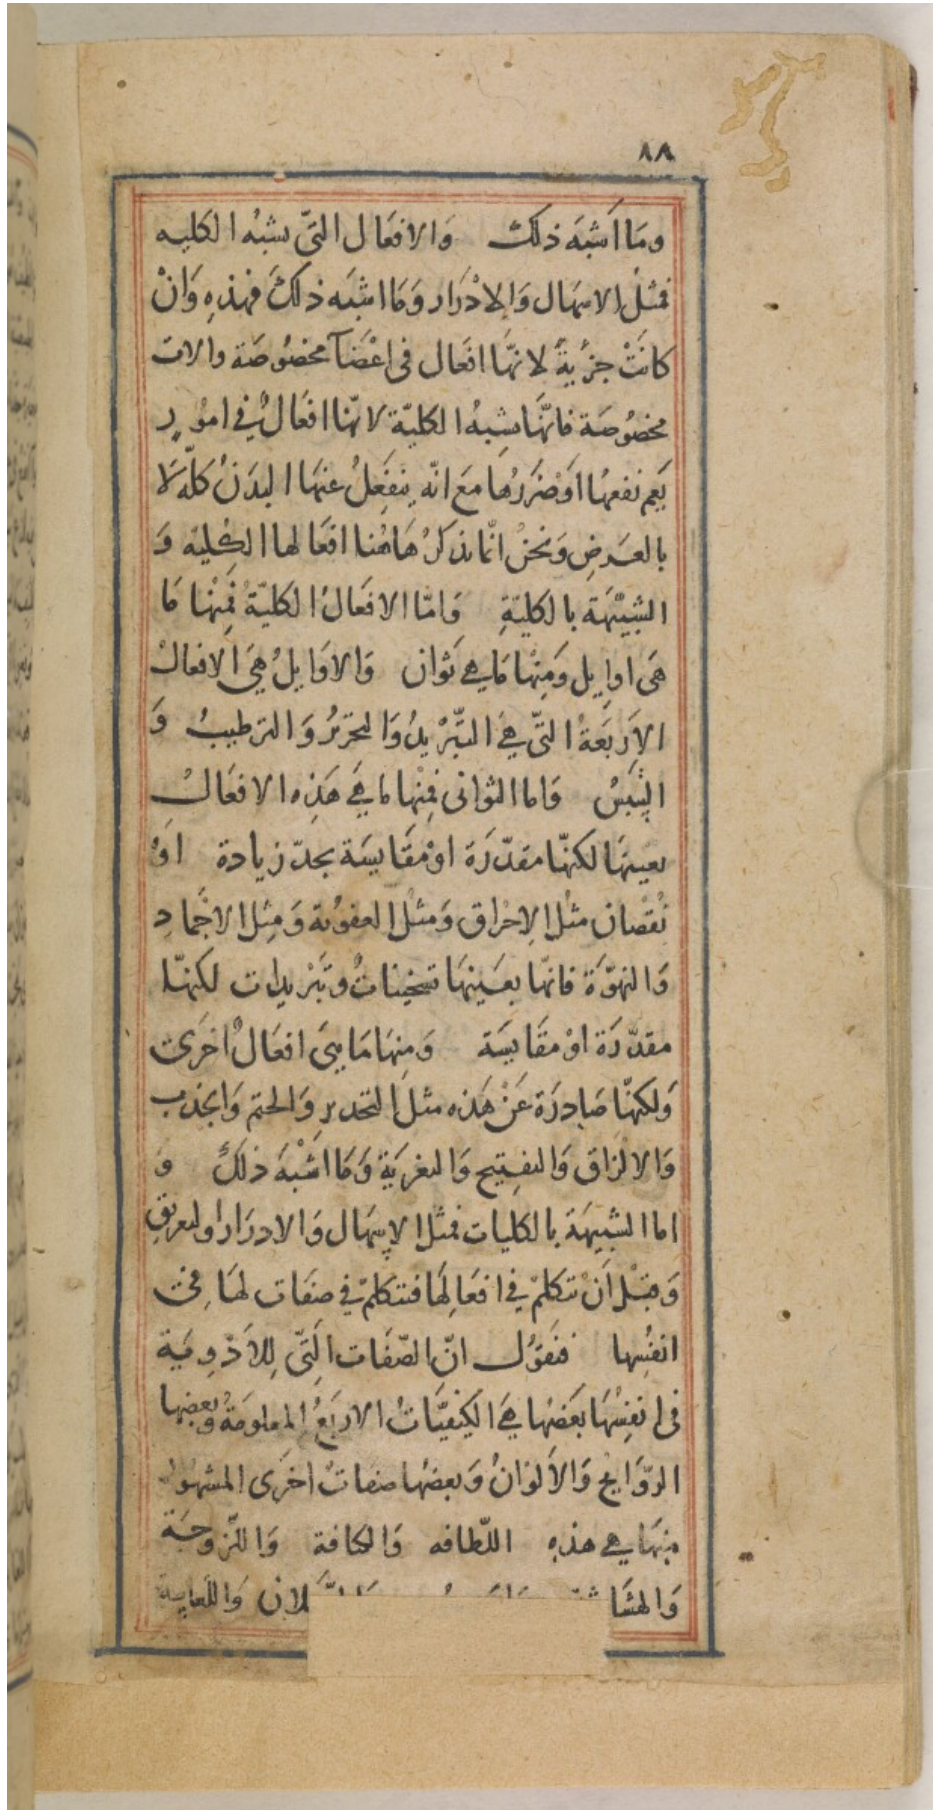 ٨٨
وما أشبه ذلك والافعال التى يشبه الكليه
فمثل الاسهال والادرار وما اشبه ذلك فهذه وان
كانت جزئية لانها افعال فى اعضآ مخصوصة والات
مخصوصة فانها يشبه الكلية لانها افعال في امور
يعم نفعها او ضررها مع انه ينفعل عنها البدن كله لا
بالعرض ونحن انما نذكر هاهنا افعالها الكلية و
الشبيهة بالكلية واما الافعال الكلية فمنها ما
هى اوايل ومنها ما هي ثوان والاوايل هي الافعال
الاربعة التى هي التبريد والتحرير والترطيب و
التيبس واما الثوانى فمنها ما هي هذه الافعال
بعينها لكنها مقدرة او مقايسة بحد زيادة او
نقصان مثل الاحراق ومثل العفونة ومثل الاجماد
والنهوة فانها بعينها تسخينات وتبريدات لكنها
مقدرة او مقايسة ومنها ما هى افعال اخرى
ولكنها صادرة عن هذه مثل التخدير والختم والجذب
والالزاق والتفتيح والتغرية وما اشبه ذلك و
اما الشبيهة بالكليات فمثل الاسهال والادرار والتعريق
وقبل أن نتكلم في افعالها فنتكلم في صفات لها فى
انفسها فنقول ان الصفات التى للأدوية
فى انفسها بعضها هي الكيفيات الاربع المعلومة وبعضها
الروايح والألوان وبعضها صفات اخرى المشهور
منها هي هذه اللطافه والكثافة واللزوجة
والهشاشة والسيلان واللعابية